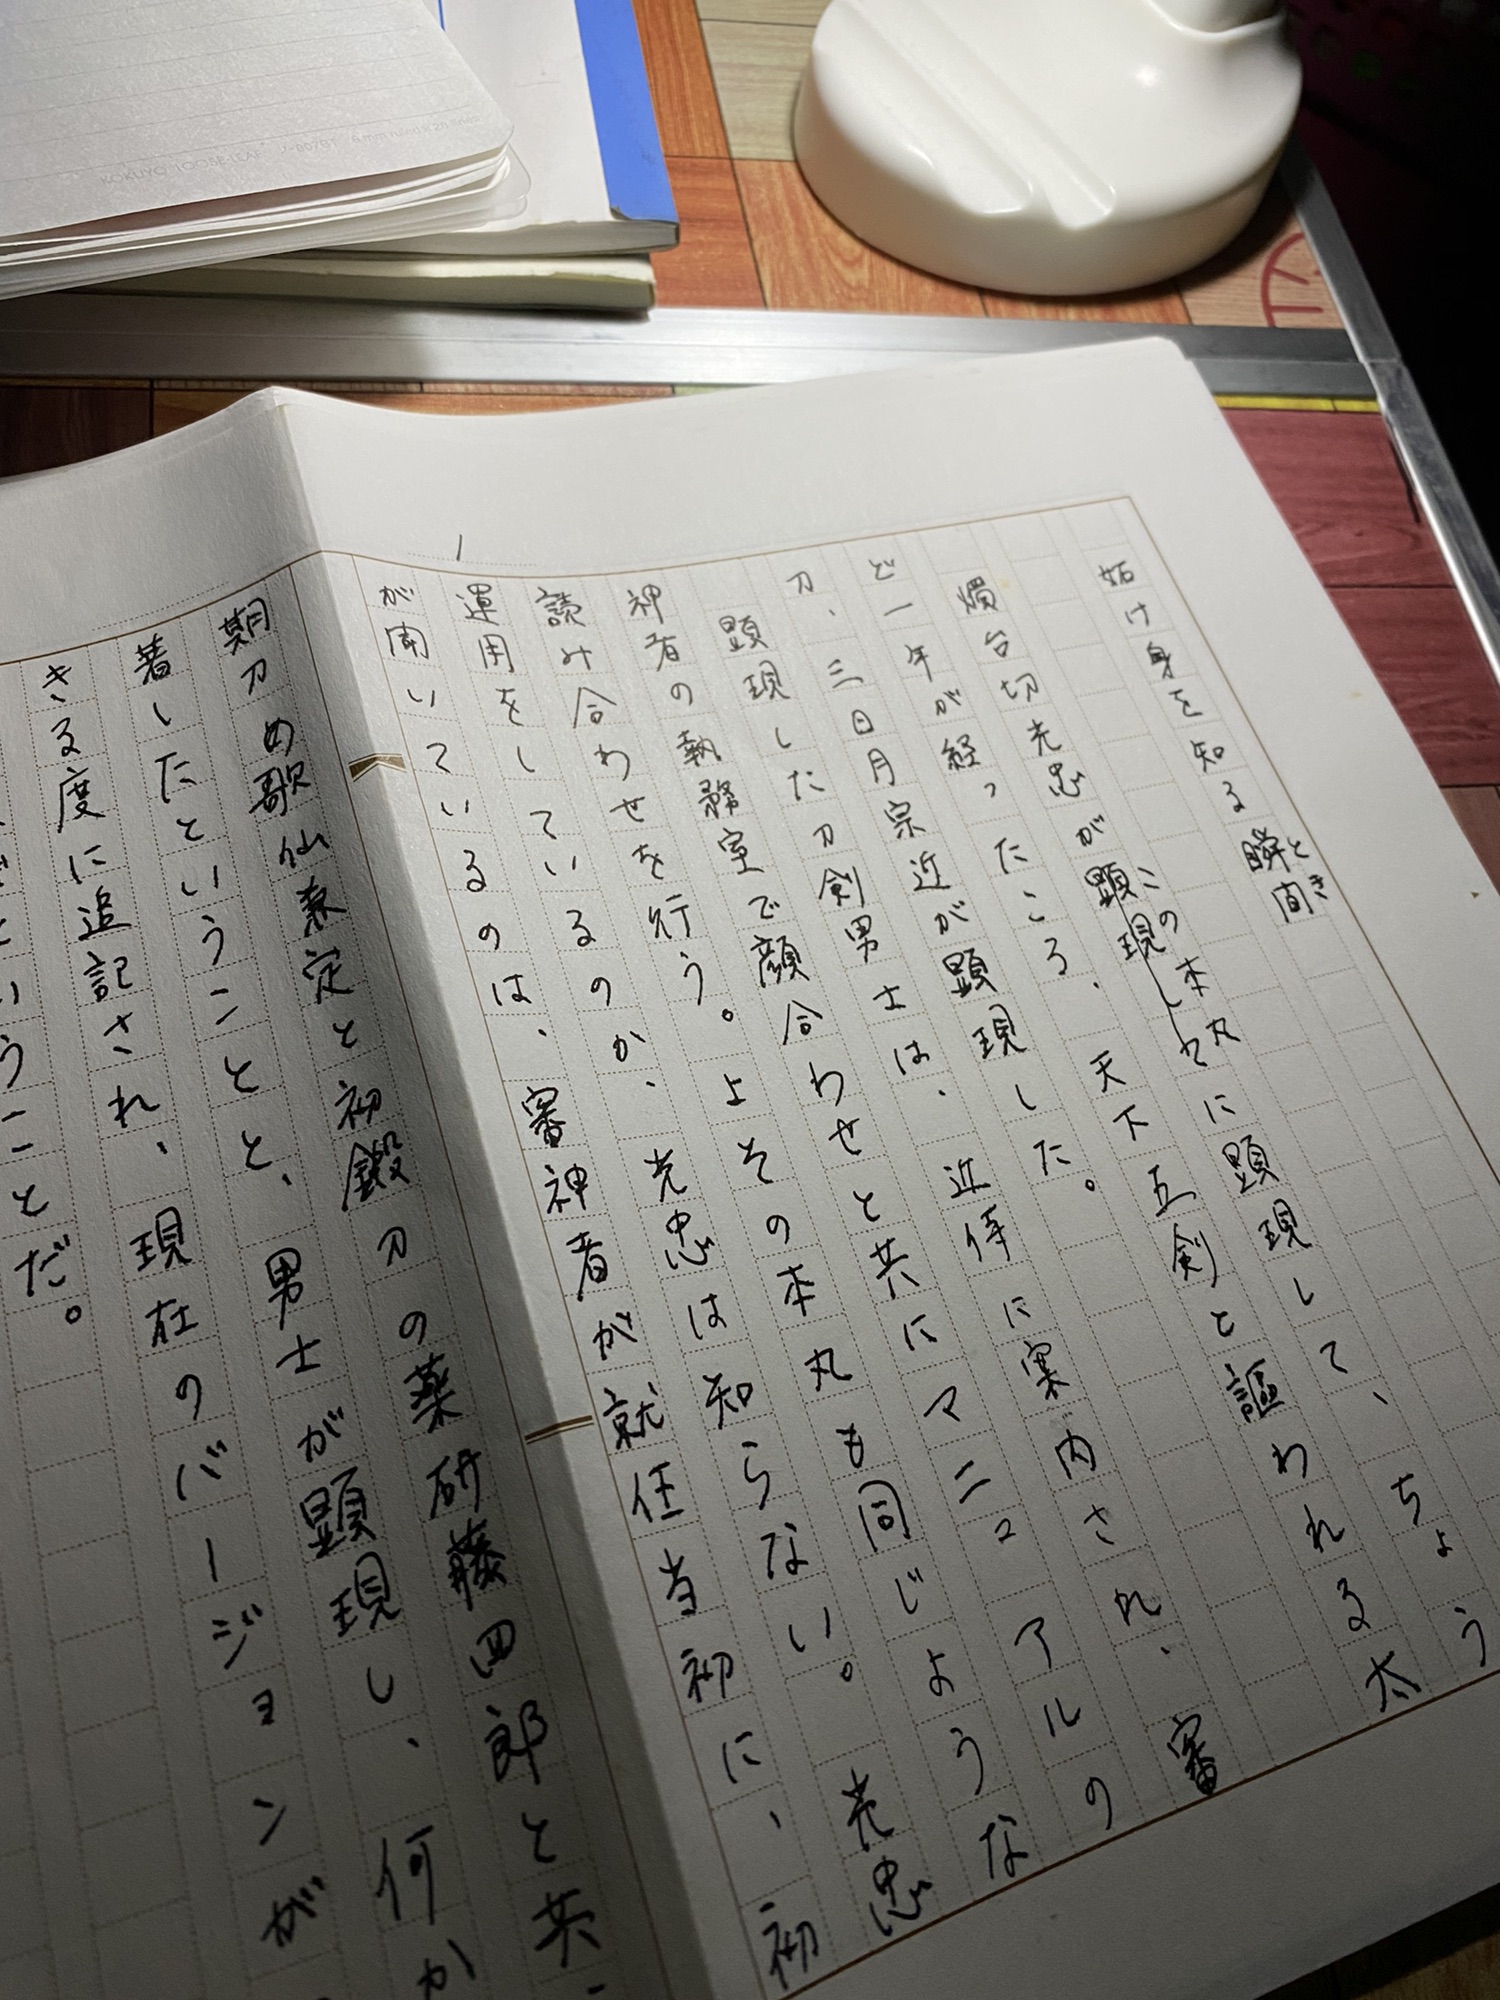 KOKUYO LOOSE-LEAF
1
妬け身を知る瞬間
とき
燭台切光忠が顕現し
この本丸
に顕現して、ちょう
ど一年が経ったころ、天下五剣と謳われる太
刀、三日月宗近が顕現した。
顕現した刀剣男士は、近侍に案内され、審
神者の執務室で顔合わせと共にマニュアルの
読み合わせを行う。よその本丸も同じような
運用をしているのか、光忠は知らない。光忠
が聞いているのは、審神者が就任当初に、初
期刀の歌仙兼定と初鍛刀の薬研藤四郎と共
着したということと、男士が顕現し、何か
きる度に追記され、現在のバージョンが
うことだ。